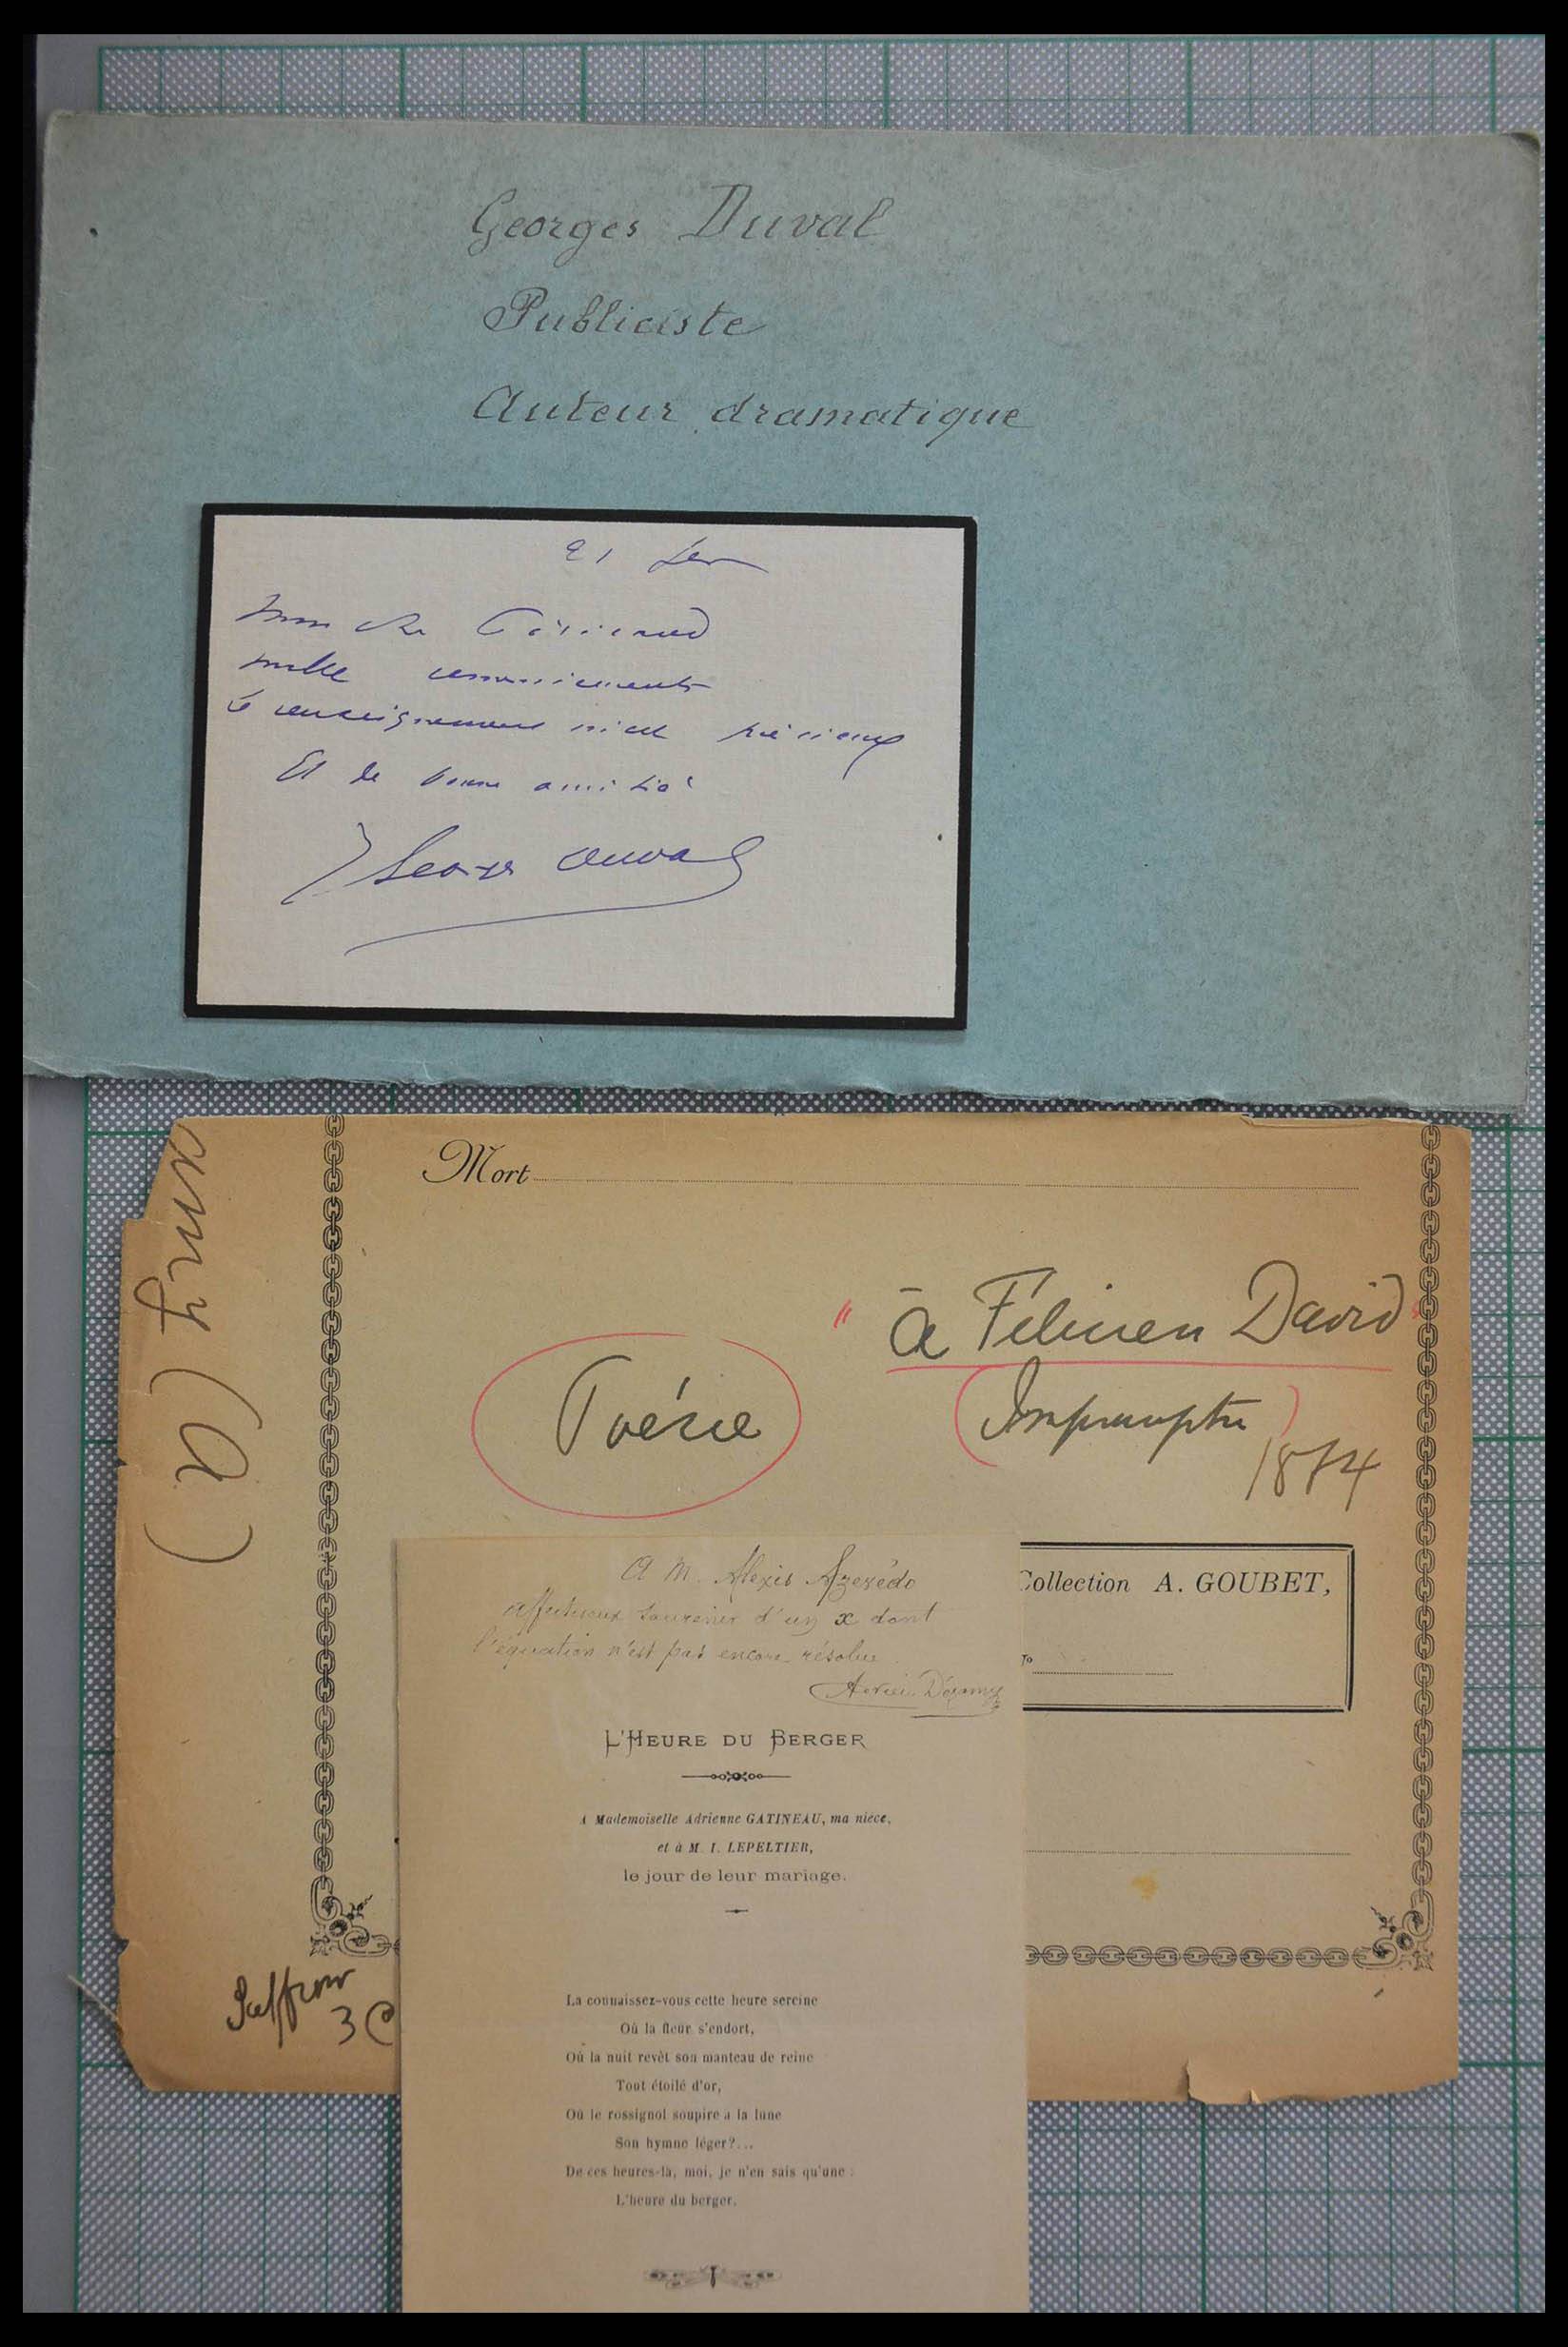 Georges Duval
Publiciste
Auteur dramatique
21
Mon cher
mille remerciements
Le renseignement m'est précieux
Et de bonne amitié
Georges Duval
Mort
" à Félicien David "
Poésie
(Impromptu)
1874
(a)
Collection A. GOUBET,
A M. Alexis Azevédo
affectueux souvenir d'un x dont
l'équation n'est pas encore résolue
L'HEURE DU BERGER
A Mademoiselle Adrienne GATINEAU, ma nièce,
et à M. I. LEPELTIER,
le jour de leur mariage.
La connaissez-vous cette heure sereine
Où la fleur s'endort,
Où la nuit revêt son manteau de reine
Tout étoilé d'or,
Où le rossignol soupire à la lune
Son hymne léger?...
De ces heures-là, moi, je n'en sais qu'une :
L'heure du berger.
Saffroy